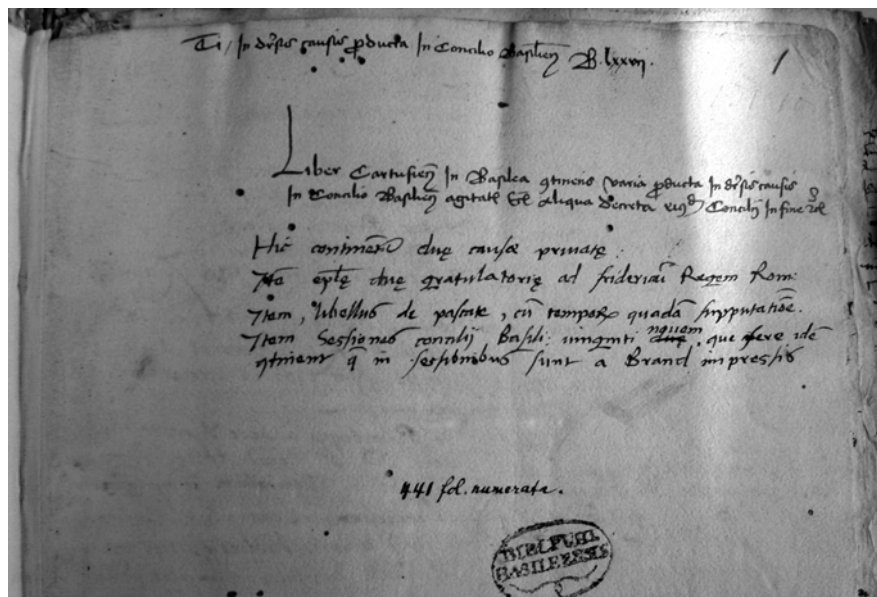 Ti, In drsis causis ꝓducta In Concilio Basilien̄ B. lxxvii. 1
Liber Cartusien̄ In Basilea ꝯtinens varia ꝓducta In drsis causis
In Concilio Basilien̄ agitatꝭ Et aliqua decreta eiusdꝫ Concilij In fine
Hic continent̄ duę causę privatę:
Itē ep̄lę duę gratulatorię ad fridericū Regem Rom:
Item, libellus de pascate, cū tempoꝝ quadā supputatiōe.
Item Sessiones concilij Basili: uiuginti nquem duę, que fere idē
ꝯtinent q̄ in sessionibus sunt a Brand impressis
441 fol. numerata.
BIBL PUBL
BASILEENSIS